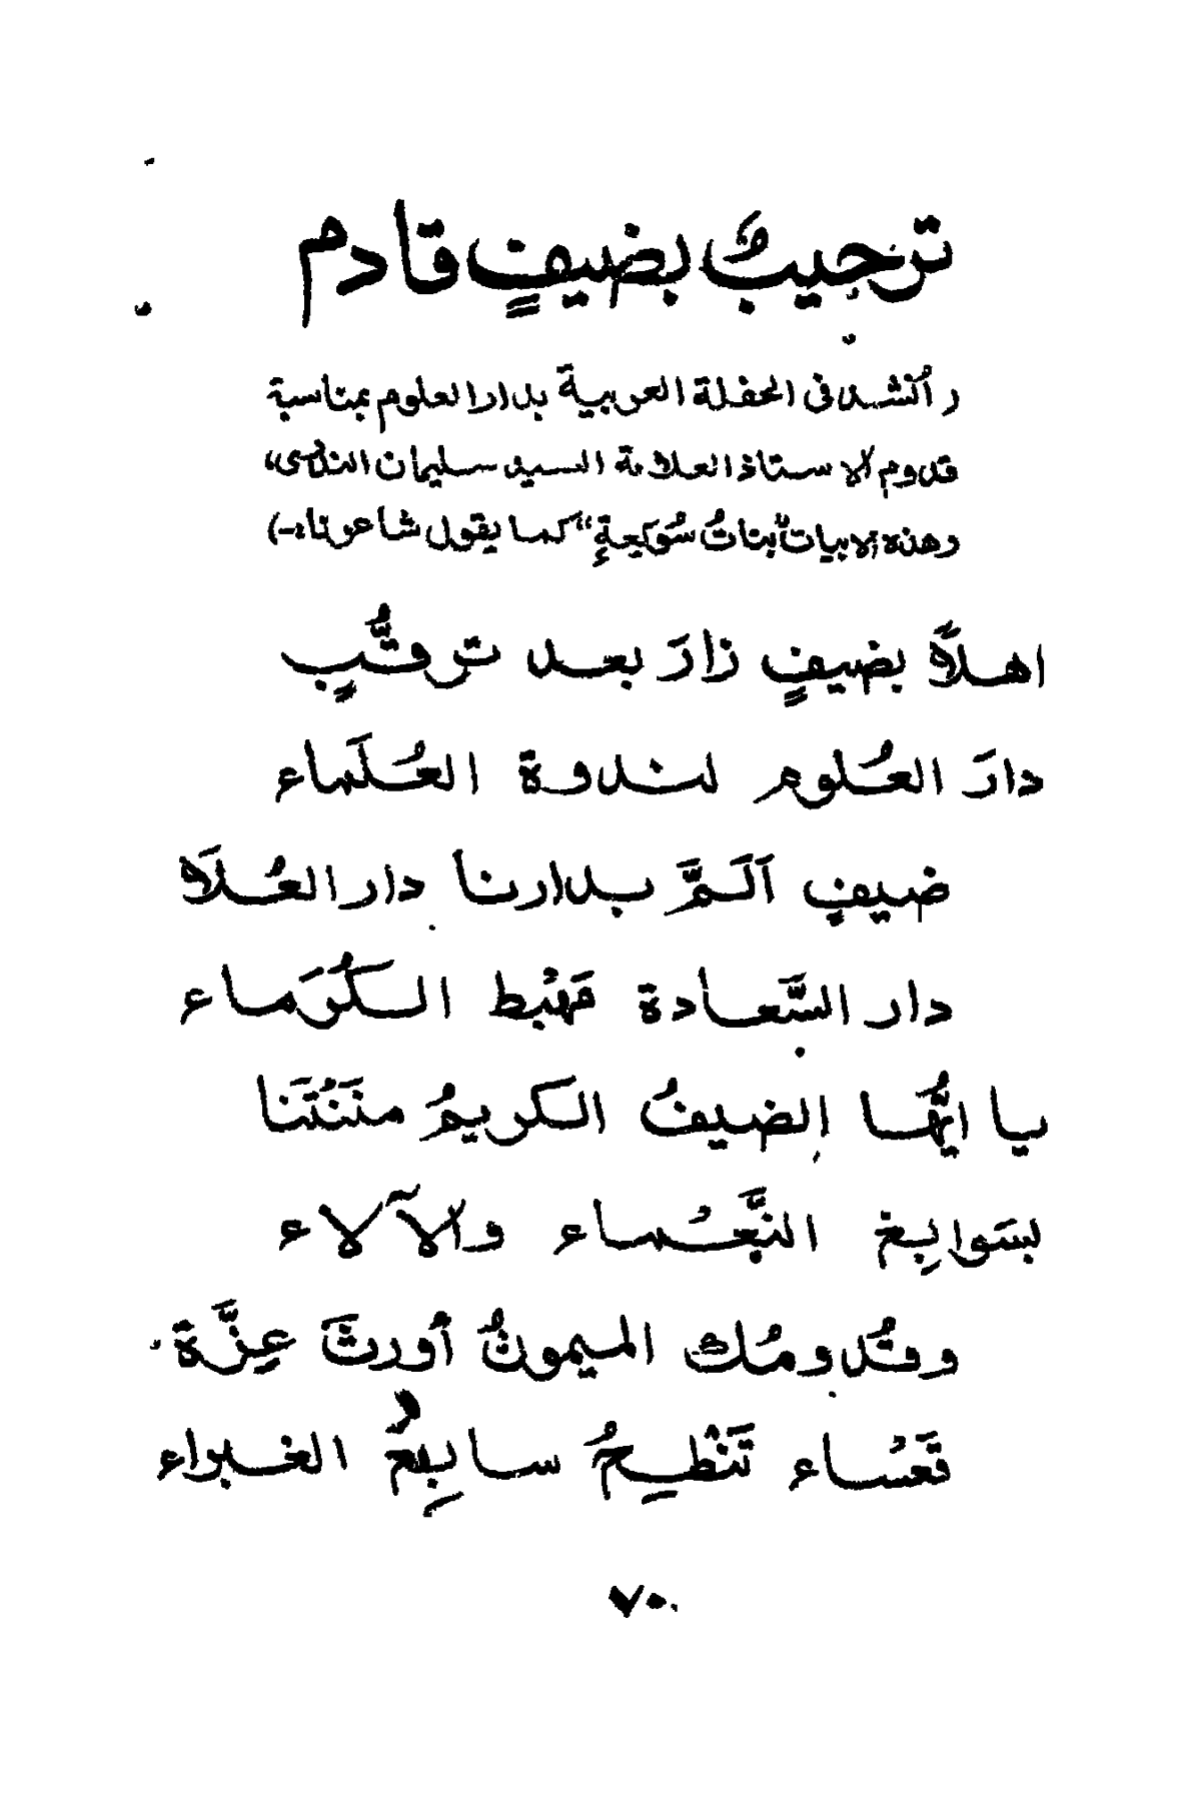 ترحيبٌ بضيفٍ قادم
(أُنشد فى الحفلة العربية بدار العلوم بمناسبة
قدوم الاستاذ العلامة السيد سليمان الندوى،
وهذه الابيات "بناتُ سُوَيعةٍ" كما يقول شاعرنا:-)
اهلاً بضيفٍ زارَ بعد ترقُّبٍ
دارَ العُلوم لندوة العُلَماء
ضيفٍ اَلَمَّ بدارنا دار العُلاَ
دار السَّعادة مَهْبط الكُرَماء
يا ايُّها الضيفُ الكريمُ مننتَنا
بسَوابِغ النَّعْماء والآلاء
وقُدومُك الميمونُ أورثَ عِزَّة
قَعْساء تَنْطِحُ سابِعُ الغبراء
٧٠